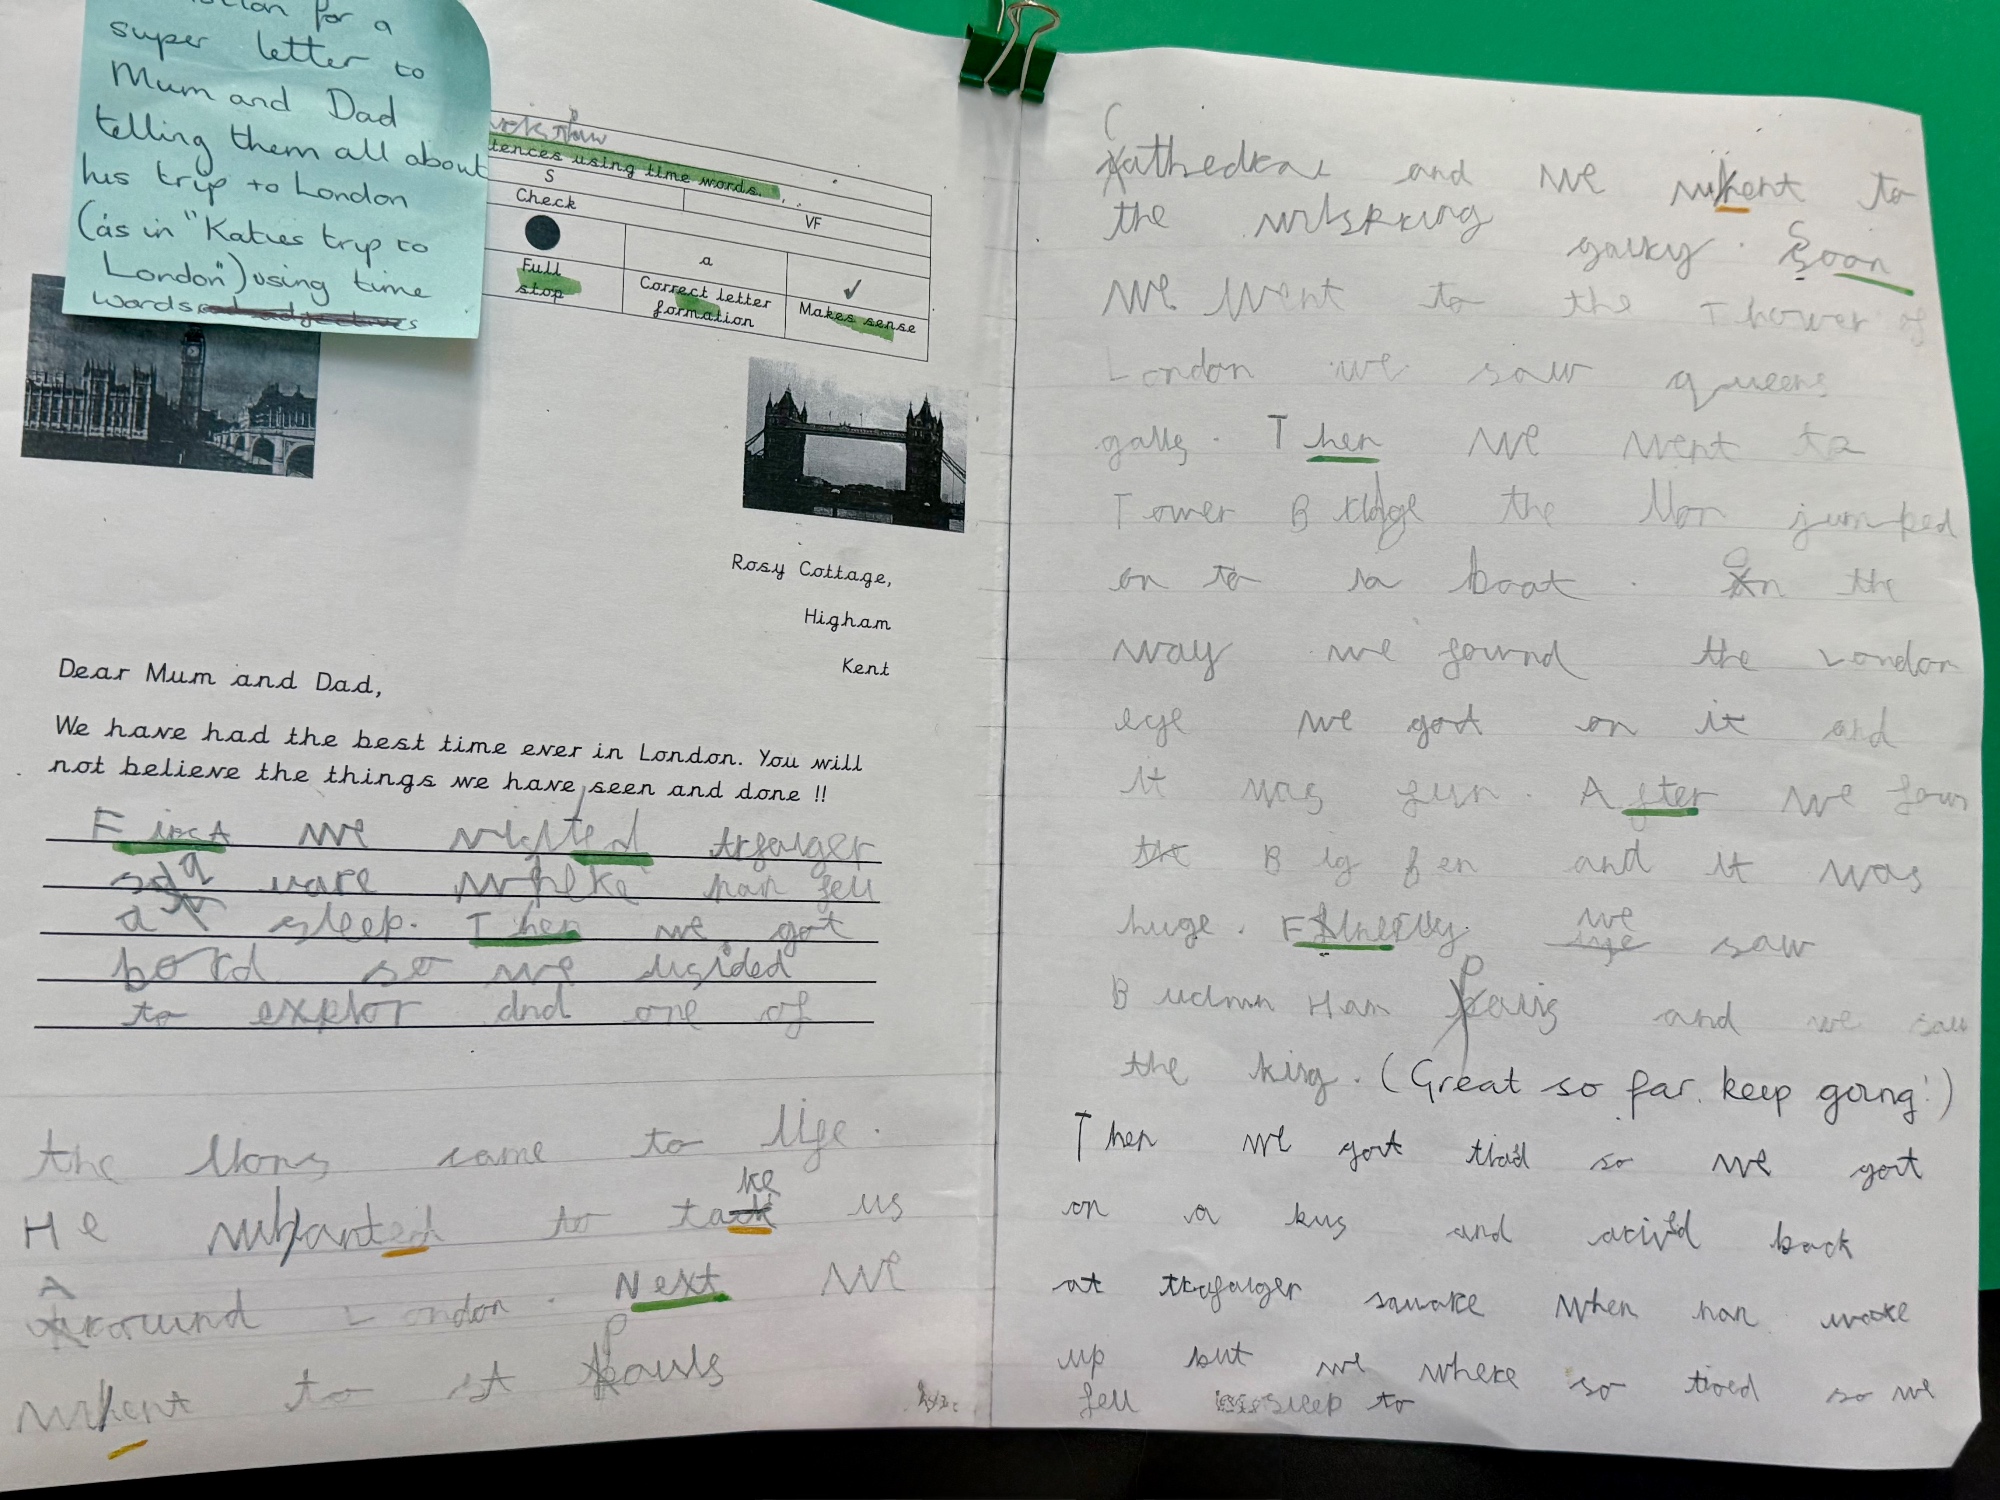 for a
super letter to
Mum and Dad
telling them all about
his trip to London
(as in "Katies trip to
London") using time
words and adjectives
tences using time words.
S
Check
VF
a
✓
Full
stop
Correct letter
formation
Makes sense
Rosy Cottage,
Higham
Kent
Dear Mum and Dad,
We have had the best time ever in London. You will
not believe the things we have seen and done !!
First we visited trfalger
sqware whike nan fell
a sleep. Then we got
bord so we disided
to explor and one of
the lions came to life.
He whanted to take us
Around London. Next we
whent to st pauls
Cathedral and we whent to
the wispring galky. Soon
we went to the Thower of
London we saw queens
galls. Then we went to
Tower Bridge the lion jumped
on to a boat. On the
way we found the London
eye we got on it and
it was fun. After we fown
the Big Ben and it was
huge. Finelly we saw
Bucimn Ham Palis and we saw
the king. (Great so far. keep going!)
Then we gort tiad so we gort
on a bus and arivd back
at trafalger sqware when nan woke
up but we where so tired so we
fell asleep to